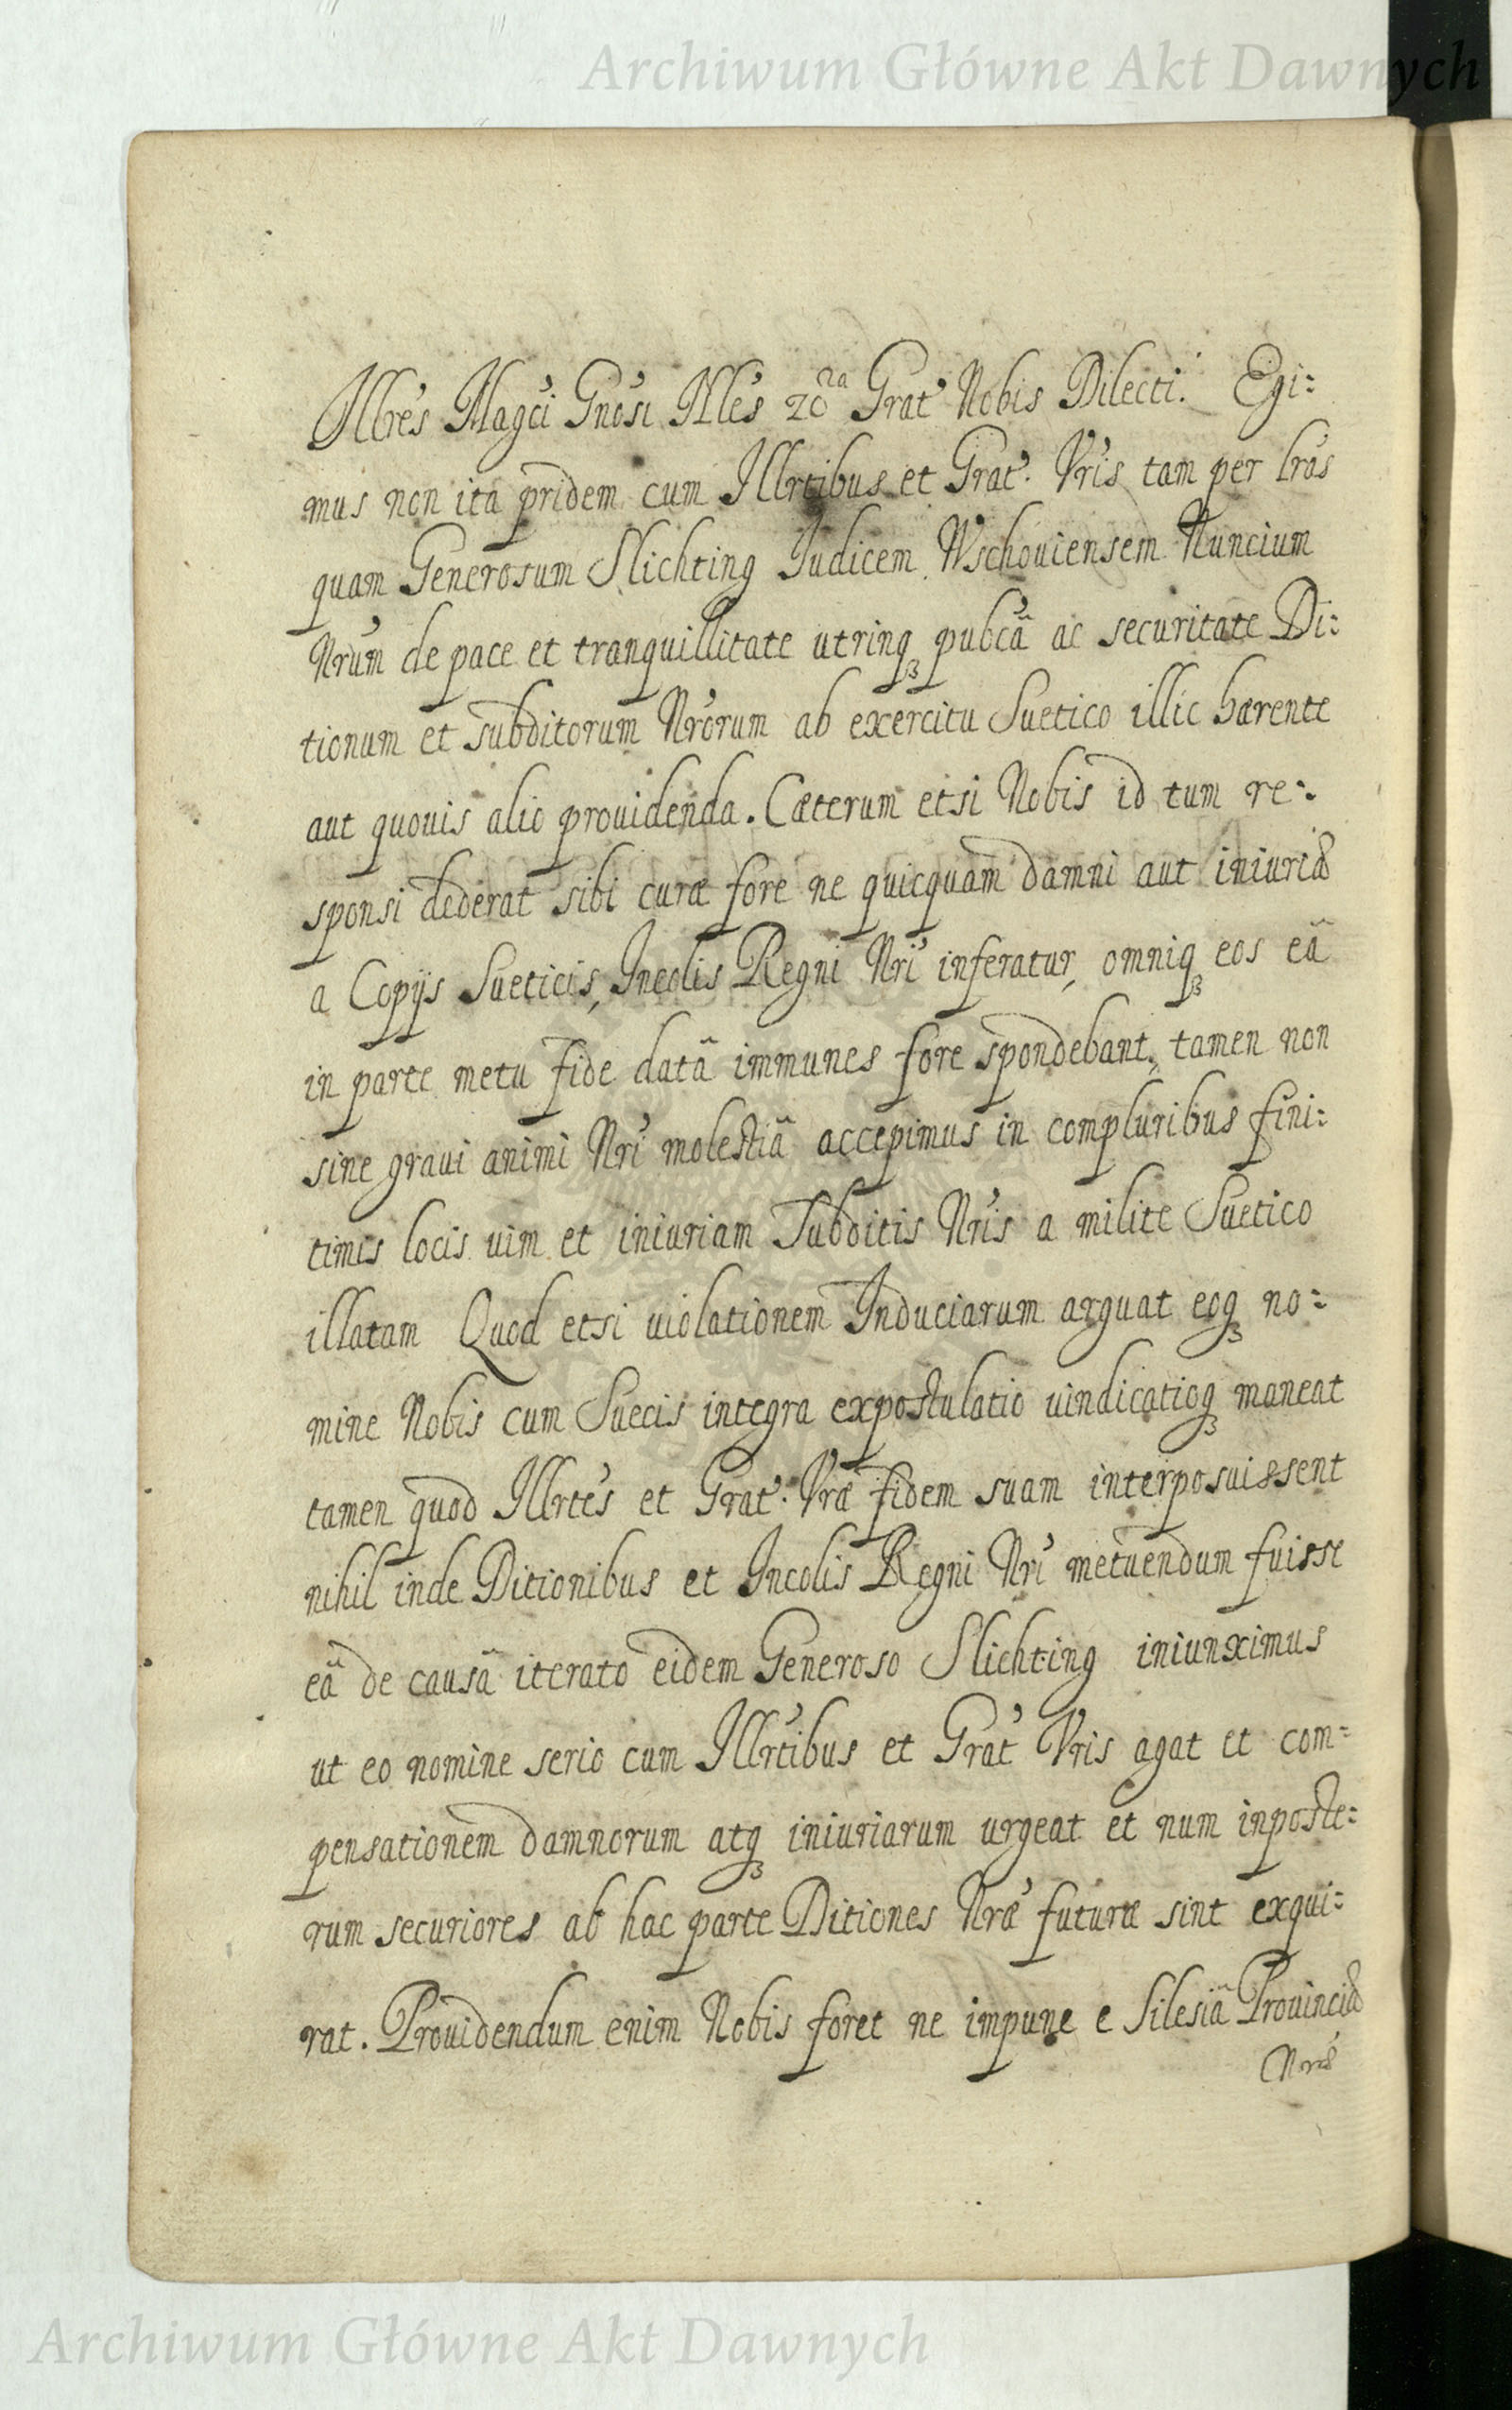 Archiwum Główne Akt Dawnych
Illres Magci Gnosi Nles Grat Nobis Dilecti. Egi:
mus non ita pridem cum Illrtibus et Grat. Vris tam per lras
quam Generosum Slichting Iudicem Wschouiensem Nuncium
Nrum de pace et tranquillitate utrinqꝫ pubcã ac securitate Di:
tionum et subditorum Nrorum ab exercitu Suetico illic hærente
aut quouis alio prouidenda. Cæterum etsi Nobis id tum re:
sponsi dederat sibi curæ fore ne quicquam damni aut iniuriæ
a Copijs Sueticis, Incolis Regni Nri inferatur, omniqꝫ eos eã
in parte metu fide datã immunes fore spondebant, tamen non
sine graui animi Nri molestiã accepimus in compluribus fini:
timis locis uim et iniuriam Subditis Nris a milite Suetico
illatam Quod etsi uiolationem Induciarum arguat eoqꝫ no:
mine Nobis cum Suecis integra expostulatio uindicatioqꝫ maneat
tamen quod Illrtes et Grat. Vræ fidem suam interposuissent
nihil inde Ditionibus et Incolis Regni Nri metuendum fuisse
eã de causã iterato eidem Generoso Slichting iniunximus
ut eo nomine serio cum Illrtibus et Grat Vris agat et com:
pensationem damnorum atqꝫ iniuriarum urgeat et num inposte:
rum securiores ab hac parte Ditiones Nræ futuræ sint exqui:
rat. Prouidendum enim Nobis foret ne impune e Silesiã Prouinciæ
Nræ
Archiwum Główne Akt Dawnych